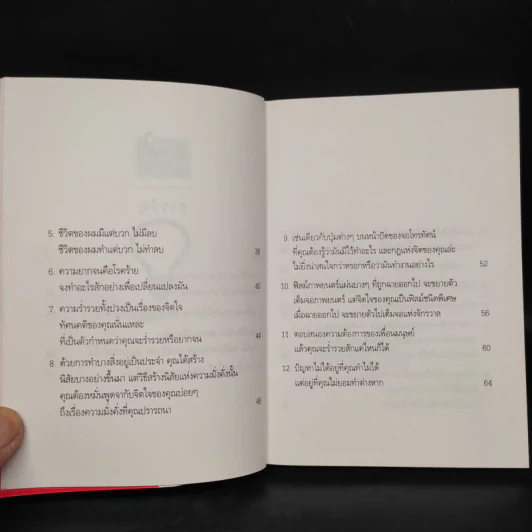 5. ชีวิตของผมมีแต่บวก ไม่มีลบ
ชีวิตของผมทำแต่บวก ไม่ทำลบ 36
6. ความยากจนคือโรคร้าย
จงทำอะไรสักอย่างเพื่อเปลี่ยนแปลงมัน 40
7. ความร่ำรวยทั้งปวงเป็นเรื่องของจิตใจ
ทัศนคติของคุณนั่นแหละ
ที่เป็นตัวกำหนดว่าคุณจะร่ำรวยหรือยากจน 44
8. ด้วยการทำบางสิ่งอยู่เป็นประจำ คุณได้สร้าง
นิสัยบางอย่างขึ้นมา แต่วิธีสร้างนิสัยแห่งความมั่งคั่งนั้น
คุณต้องหมั่นพูดจากับจิตใจของคุณบ่อยๆ
ถึงเรื่องความมั่งคั่งที่คุณปรารถนา 48
9. เช่นเดียวกับปุ่มต่างๆ บนหน้าปัดของจอโทรทัศน์
ที่คุณต้องรู้ว่ามันมีไว้ทำอะไร และกฎแห่งจิตของคุณล่ะ
ไม่ยิ่งน่าสนใจกว่าหรอกหรือว่ามันทำงานอย่างไร 52
10. ฟิล์มภาพยนตร์แผ่นบางๆ ที่ถูกฉายออกไป จะขยายตัว
เต็มจอภาพยนตร์ แต่จิตใจของคุณเป็นฟิล์มชนิดพิเศษ
เมื่อฉายออกไป จะขยายตัวไปเต็มจอแห่งจักรวาล 56
11. ตอบสนองความต้องการของเพื่อนมนุษย์
แล้วคุณจะร่ำรวยสักแค่ไหนก็ได้ 60
12. ปัญหาไม่ได้อยู่ที่คุณทำไม่ได้
แต่อยู่ที่คุณไม่ยอมทำต่างหาก 64